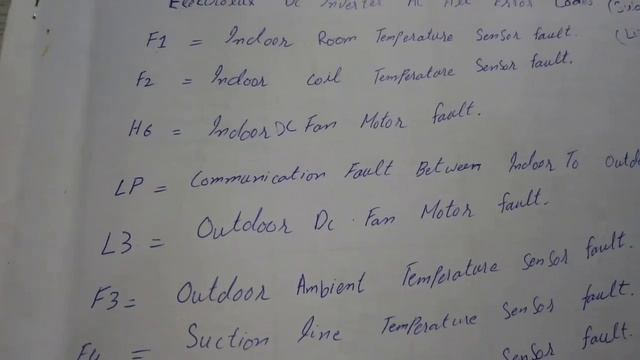 Electrolux DC Inverter AC All Error Codes
F1 = Indoor Room Temperature Sensor fault.
F2 = Indoor Coil Temperature Sensor fault.
H6 = Indoor DC Fan Motor fault.
LP = Communication Fault Between Indoor To Outdo
L3 = Outdoor Dc. Fan Motor fault.
F3 = Outdoor Ambient Temperature Sensor fault.
F4 = Suction line Temperature Sensor fault.
Sensor fault.